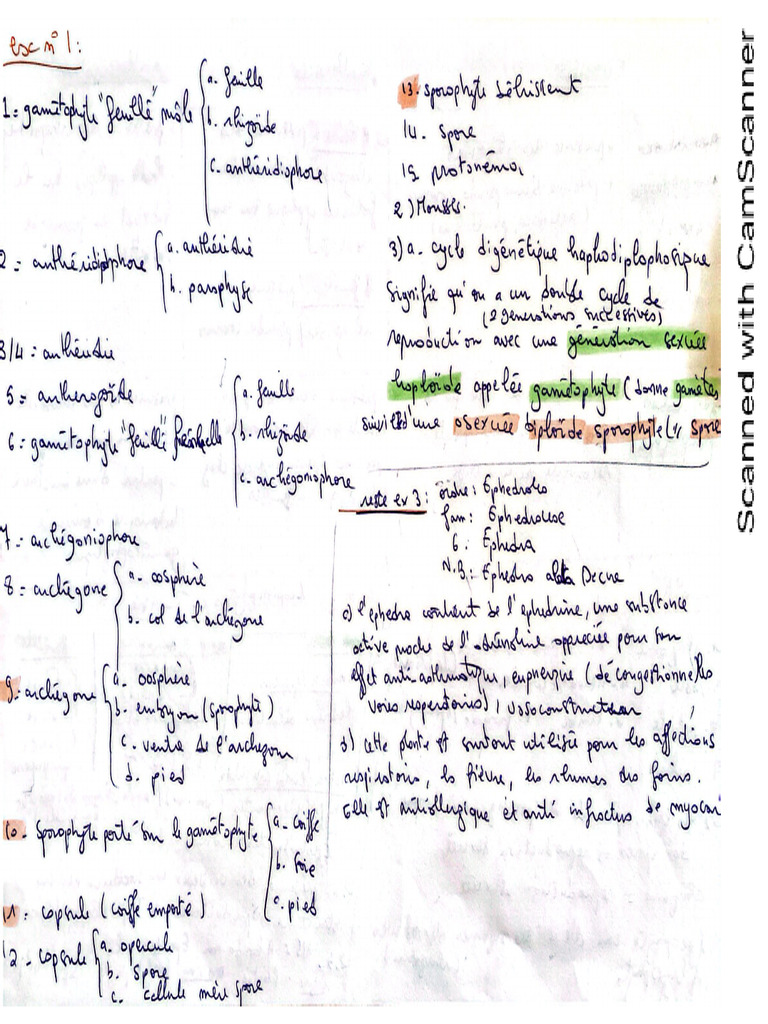 exc n° 1:
1 = gamétophyte "feuillé" mâle
a. feuille
b. rhizoïde
c. anthéridiophore
2 = anthéridiophore
a. anthéridie
b. paraphyse
3/4 = anthéridie
5 = anthérozoïde
6 = gamétophyte "feuillé" femelle
a. feuille
b. rhizoïde
c. archégoniophore
7 = archégoniophore
8 = archégone
a. oosphère
b. col de l'archégone
9 = archégone
a. oosphère
b. embryon (sporophyte)
c. ventre de l'archégone
d. pied
10 - Sporophyte porté sur le gamétophyte
a. coiffe
b. soie
c. pied
11 = capsule (coiffe emporté)
12 - capsule
a. opercule
b. Spore
c. cellule mère spore
13. sporophyte déhiscent
14. spore
15. protonéma
2) Mousses.
3) a. cycle digénétique haplodiplophasique
Signifie qu'on a un double cycle de
(2 générations successives)
reproduction avec une génération sexuée
haploïde appelée gamétophyte (donne gamètes
suivie d'une asexuée diploïde sporophyte (" spore
reste ex 3 : ordre : Ephedrales
fam : Ephedraceae
G : Ephedra
N.B : Ephedra alata Decne
a) l'ephedra contient de l'ephedrine, une substance
active proche de l'adrénaline appréciée pour son
effet anti asthmatique, (décongestionne les
voies respiratoires), vasoconstricteur
b) Cette plante est surtout utilisée pour les affections
respiratoires, la fièvre, les rhumes des foins.
Elle est antiallergique et anti infarctus de myocar
Scanned with CamScanner